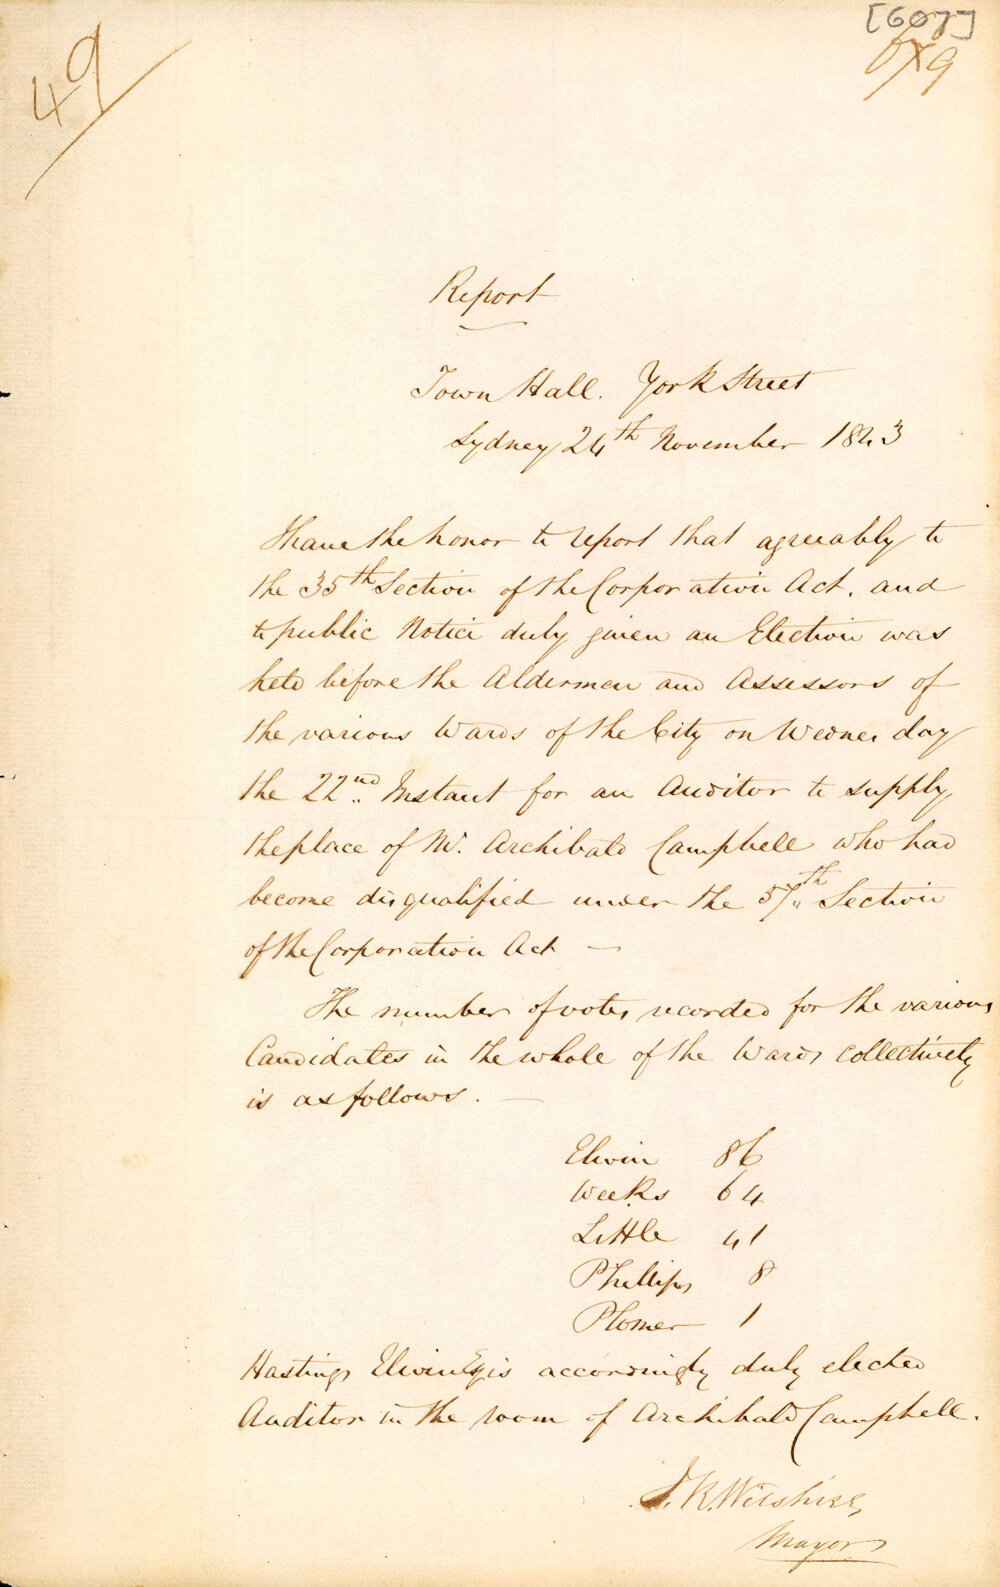 [607]
679
49
Report
Town Hall. York Street
Sydney 24th November 1843
I have the honor to report that agreeably to
the 35th Section of the Corporation Act. and
to public Notice duly given an Election was
held before the Aldermen and Assessors of
the various Wards of the City on Wednesday
the 22nd Instant for an Auditor to supply
the place of Mr. Archibald Campbell who had
become disqualified under the 57th Section
of the Corporation Act —
The number of votes recorded for the various
Candidates in the whole of the Wards collectively
is as follows. —
Elwin 86
Weeks 64
Little 41
Phillips 8
Plomer 1
Hastings Elwin Esq is accordingly duly elected
Auditor in the room of Archibald Campbell.
J. R. Wilshire,
Mayor